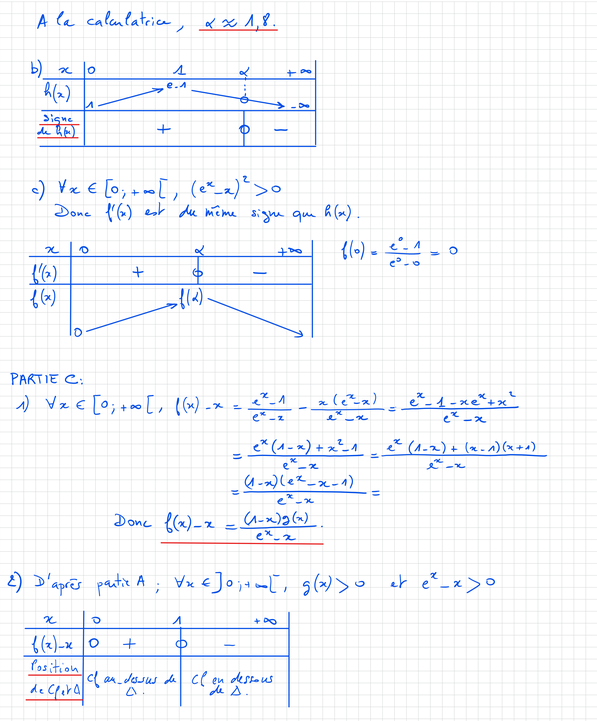 A la calculatrice, α ≈ 1,8.
b) x 0 1 α +∞
h(x) 1 e-1 0 -∞
signe de h(x) + 0 -
c) ∀x ∈ [0; +∞[, (e^x - x)² > 0
Donc f'(x) est du même signe que h(x).
x 0 α +∞
f'(x) + 0 -
f(x) 0 f(α)
f(0) = (e^0 - 1)/(e^0 - 0) = 0
PARTIE C:
1) ∀x ∈ [0; +∞[, f(x) - x = (e^x - 1)/(e^x - x) - x(e^x - x)/(e^x - x) = (e^x - 1 - xe^x + x²)/(e^x - x)
= (e^x(1-x) + x² - 1)/(e^x - x) = (e^x(1-x) + (x-1)(x+1))/(e^x - x)
= (1-x)(e^x - x - 1)/(e^x - x) =
Donc f(x) - x = (1-x)g(x)/(e^x - x).
2) D'après partie A ; ∀x ∈ ]0; +∞[, g(x) > 0 et e^x - x > 0
x 0 1 +∞
f(x)-x 0 + 0 -
Position de Cf et Δ
Cf au-dessus de Δ.
Cf en dessous de Δ.